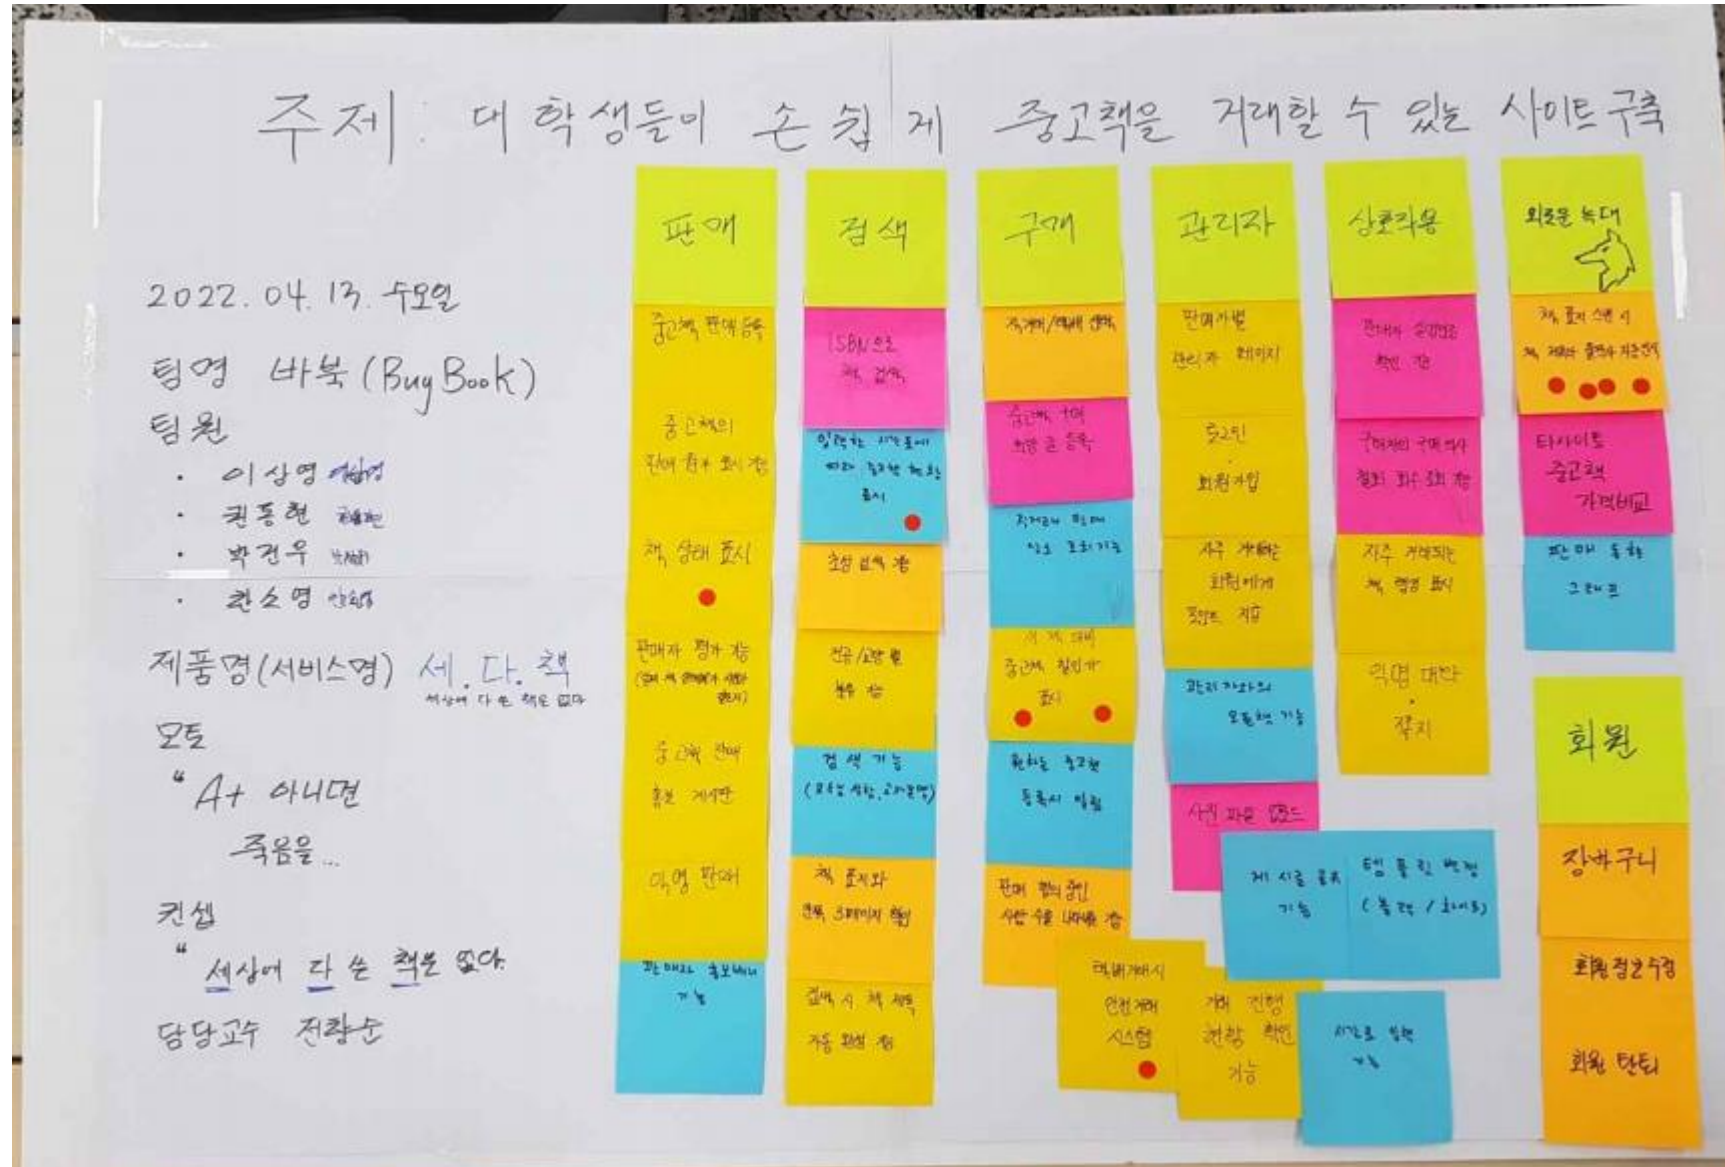 주제: 대학생들이 손쉽게 중고책을 거래할 수 있는 사이트 구축
2022. 04. 13. 수요일
팀명 바북(BuyBook)
팀원
· 이상영
· 권동현
· 박건우
· 한소영
제품명(서비스명) 세.다.책
세상에 다 쓴 책은 없다
모토
"A+ 아니면
죽음을...
컨셉
"세상에 다 쓴 책은 없다.
담당교수 전광순
판매
중고책 판매 등록
중고책의
판매 표시
책 상태 표시
판매자 평가 기능
중고책 판매
홍보 게시판
익명 판매
판매자 홍보배너
기능
검색
ISBN으로
책 검색
입력한 시간표에
따라 중고책 현황
표시
초성 검색
전공/교양 별
분류
검색 기능
책 표지와
3페이지 확인
검색 시 책 제목
자동 완성
구매
직거래/택배 선택
중고책 구매
희망 글 등록
직거래 판매
장소 조회 기능
대비
중고책 할인가
표시
원하는 중고책
등록시 알림
판매
사람 수를
택배거래시
안전거래
시스템
거래 진행
현황 확인
기능
관리자
판매자별
관리자 페이지
로그인
·
회원가입
자주 거래하는
회원에게
포인트 지급
관리자와의
오픈챗 기능
사진 파일 업로드
게시글 공유
기능
템플릿 변경
(블랙 / 화이트)
시간표 입력
기능
상호작용
판매자
확인
구매자의 구매의사
철회 횟수 조회
자주 거래되는
책 랭킹 표시
익명 대화
·
쪽지
외로운 늑대
책 표지 스캔 시
책 제목과 출판사 자동인식
타사이트
중고책
가격비교
판매 동향
그래프
회원
장바구니
회원 정보 수정
회원 탈퇴